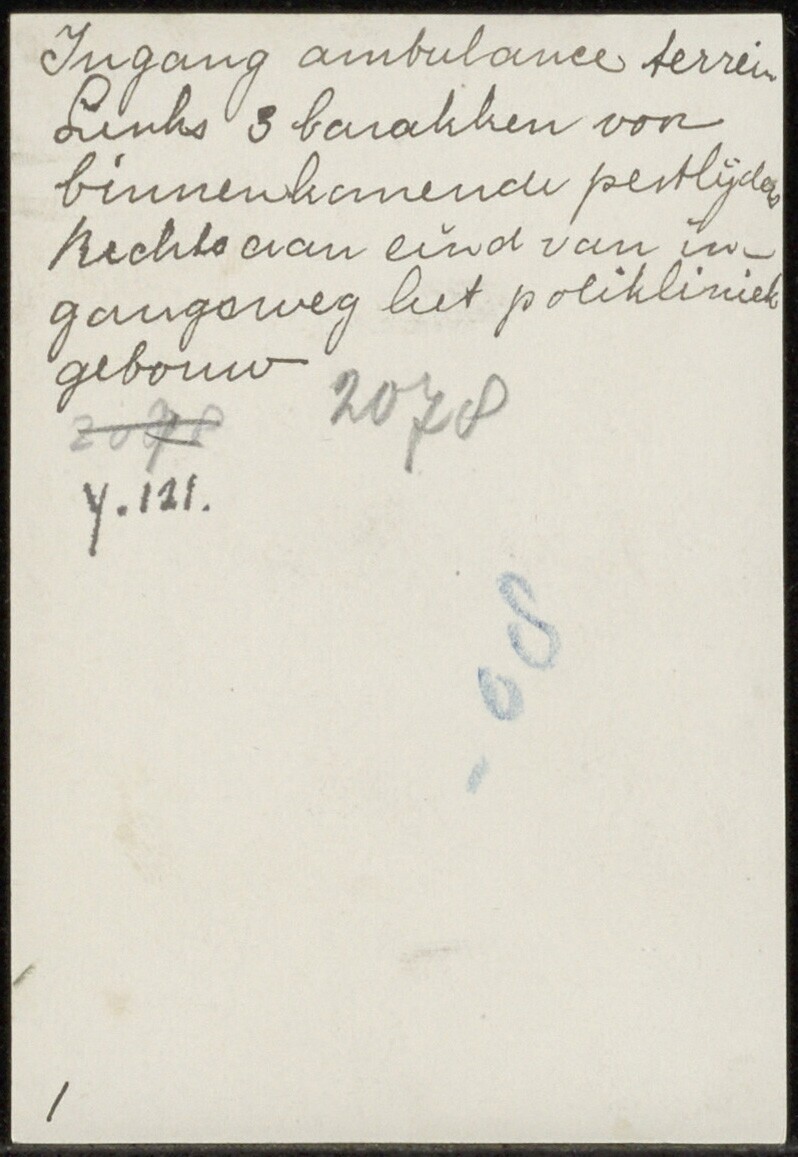 Ingang ambulance terrein
Links 3 barakken voor
binnenkomende pestlijders
Rechts aan eind van in-
gangsweg het polikliniek
gebouw
2078
2078
Y.121.
-08
/